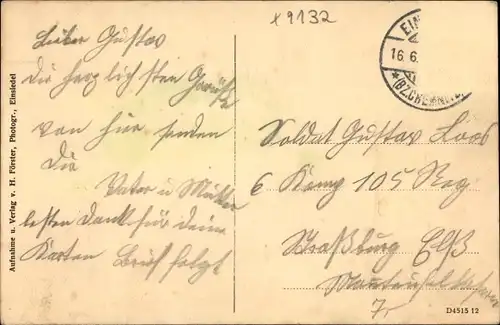 x 9132
Lieber Gustav
Die herzlichsten Grüße
von hier senden
Dir
Vater u Mutter
besten Dank für deine
Karten Brief folgt
Aufnahme u. Verlag v. H. Förster, Photogr., Einsiedel
EIN
16. 6.
*(BZ.CHEMNITZ)
Soldat Gustav Loos
6 Komp 105 Reg
Straßburg Elß
D4515 12